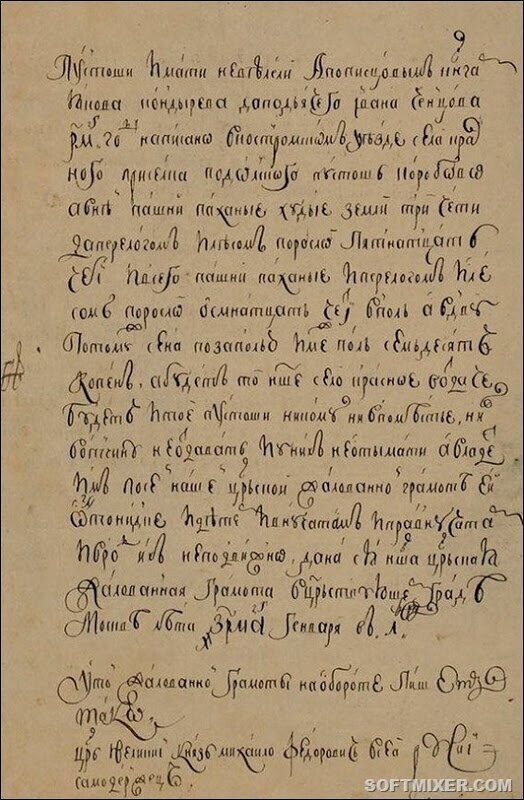 Пустоши имати невелѣли Аписцовымъ книга
Якова кондырева даподьячего Ивана Ченцова
рм го написано вкостромскомъ уѣзде села крас
ного приселка подолского пустошь коробово
авней пашни паханые худые земли три чети
даперелогомъ илѣсомъ поросло пятнатцать
чети ивсего пашни паханые иперелогомъ илѣ
сомъ поросло осмнатцать чети вполь авдву
потому сена позаполью имеж поль семьдесятъ
копенъ, абудетъ то нше село красное водаче
будетъ итое пустоши никому нивпомѣстье, ни
вотчину неотдавать иунихъ неотымати авладе
имъ посей нашей црьской жалованной грамотѣ ей
идѣтем ивнучатамъ иправнучата
ивродъ ихъ неподвижно, дана сия нша црьская
жалованная грамота вцрьствующем градѣ
Москвѣ лѣта зрма генваря въ л.
Утой жалованной грамоты наобороте пишетъ
тако
црь великий князь михайло федорович всеа русии
самодержецъ
SOFTMIXER.COM